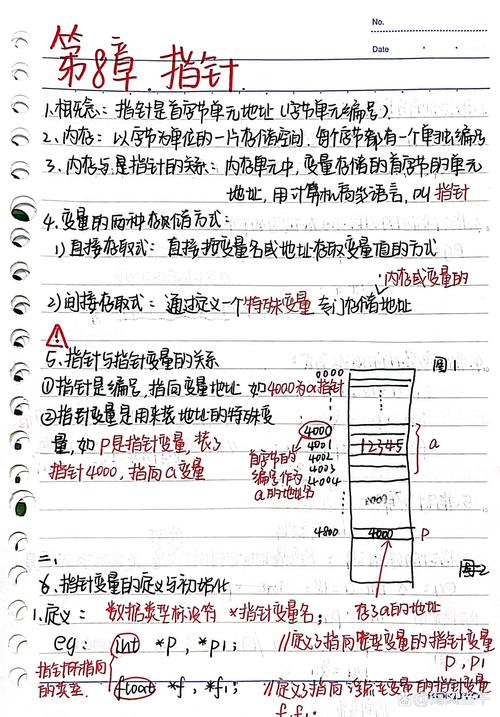 No.
Date
第8章 指针
1.概念：指针是首字节单元地址（字节单元编号）.
2.内存：以字节为单位的一片存储空间，每个字节都有一个单独编号
3.内存与是指针的关系：内存单元中，变量存储的首字节的单元
地址，用计算机高级语言，叫指针
4.变量的两种存取储方式：
1)直接存取式：直接按变量名或地址存取变量值的方式
内存或变量的
2)间接存取式：通过定义一个特殊变量专门存储地址
5.指针与指针变量的关系
图1
①指针是编号，指向变量地址 如4000为a指针
②指针变量是用来装地址的特殊变
量，如P是指针变量，装了
指针4000，指向a变量
0000
4000
4001
4002
4003
4004
12345
a
首字节的
编号作为
a的地址
4800
4000
P
存了a的地址
图2
二、
6.指针变量的定义与初始化
1.定义：数据类型标识符 *指针变量名；
eg：int *P，*P1； //定义了指向整型变量的指针变量
P，P1
指针所指向
的类型
float *f，*f1； //定义了指向浮点变量的指针变量
f，f1